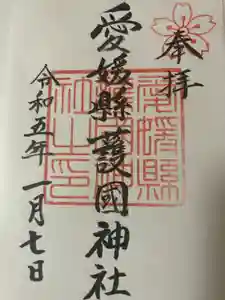 奉拝
愛媛縣護國神社
愛媛縣護國神社之印
令和五年一月七日